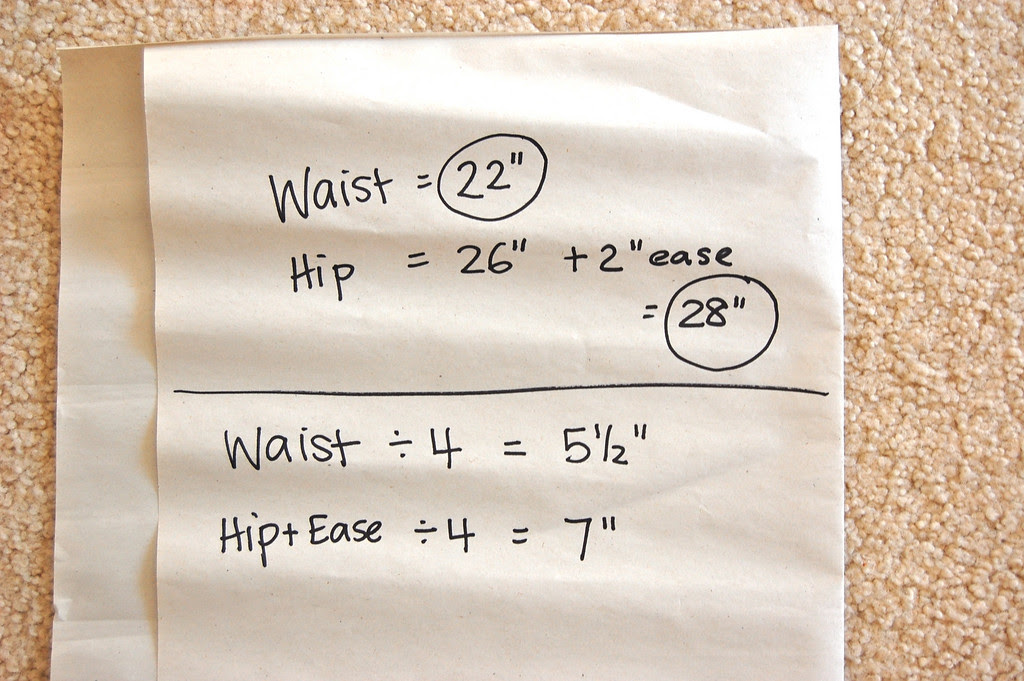 Waist = 22"
Hip = 26" + 2" ease
= 28"
Waist ÷ 4 = 5 1/2"
Hip + Ease ÷ 4 = 7"